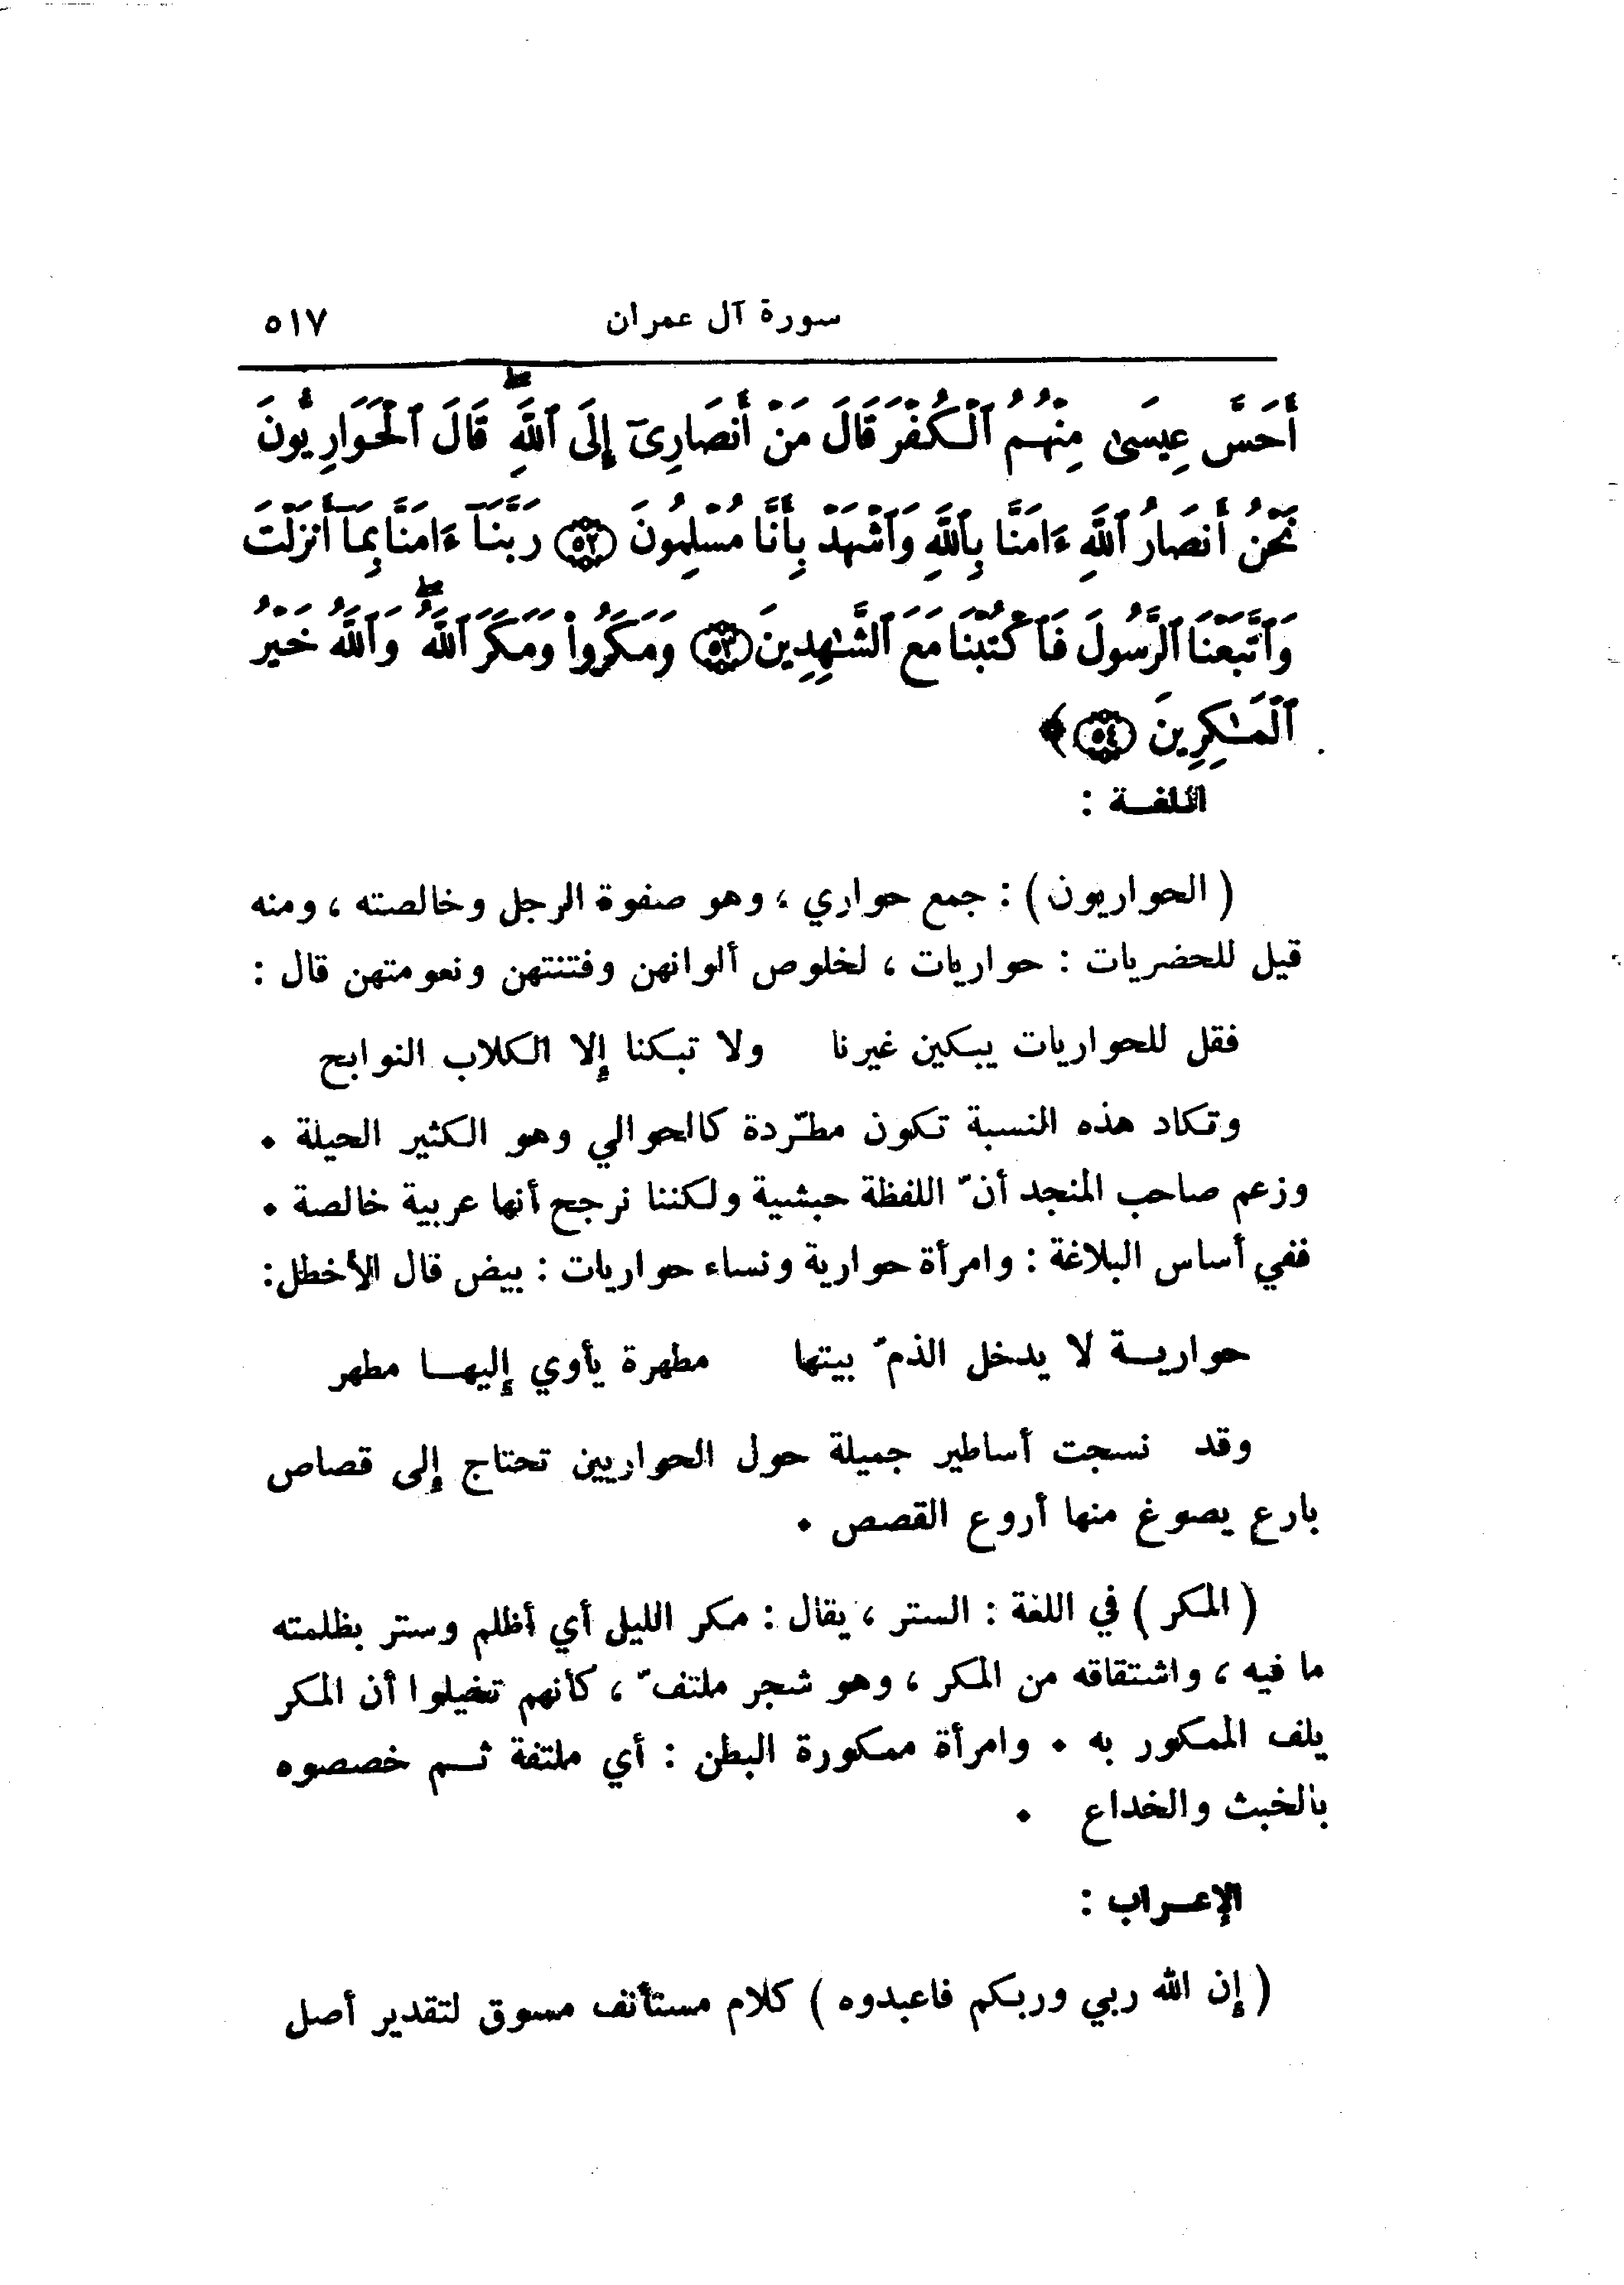 سورة آل عمران ٥١٧
أَحَسَّ عِيسَىٰ مِنْهُمُ ٱلْكُفْرَ قَالَ مَنْ أَنصَارِىٓ إِلَى ٱللَّهِ ۖ قَالَ ٱلْحَوَارِيُّونَ
نَحْنُ أَنصَارُ ٱللَّهِ ءَامَنَّا بِٱللَّهِ وَٱشْهَدْ بِأَنَّا مُسْلِمُونَ ﴿٥٢﴾ رَبَّنَآ ءَامَنَّا بِمَآ أَنزَلْتَ
وَٱتَّبَعْنَا ٱلرَّسُولَ فَٱكْتُبْنَا مَعَ ٱلشَّـٰهِدِينَ ﴿٥٣﴾ وَمَكَرُوا۟ وَمَكَرَ ٱللَّهُ ۖ وَٱللَّهُ خَيْرُ
ٱلْمَـٰكِرِينَ ﴿٥٤﴾ ﴾
اللغـة :
( الحواريون ) : جمع حواري ، وهو صفوة الرجل وخالصته ، ومنه
قيل للحضريات : حواريات ، لخلوص ألوانهن وفتنتهن ونعومتهن قال :
فقل للحواريات يبكين غيرنا ولا تبكنا إلا الكلاب النوابح
وتكاد هذه النسبة تكون مطّردة كالحوالي وهو الكثير الحيلة .
وزعم صاحب المنجد أنّ اللفظة حبشية ولكننا نرجح أنها عربية خالصة .
ففي أساس البلاغة : وامرأة حوارية ونساء حواريات : بيض قال الأخطل:
حواريـة لا يدخل الذمّ بيتها مطهرة يأوي إليهـا مطهر
وقد نسجت أساطير جميلة حول الحواريين تحتاج إلى قصاص
بارع يصوغ منها أروع القصص .
( المكر ) في اللغة : الستر ، يقال : مكر الليل أي أظلم وستر بظلمته
ما فيه ، واشتقاقه من المكر ، وهو شجر ملتفّ ، كأنهم تخيلوا أن المكر
يلف الممكور به . وامرأة ممكورة البطن : أي ملتفة ثـم خصصوه
بالخبث والخداع .
الإعـراب :
( إن الله ربي وربكم فاعبدوه ) كلام مستأنف مسوق لتقدير أصل